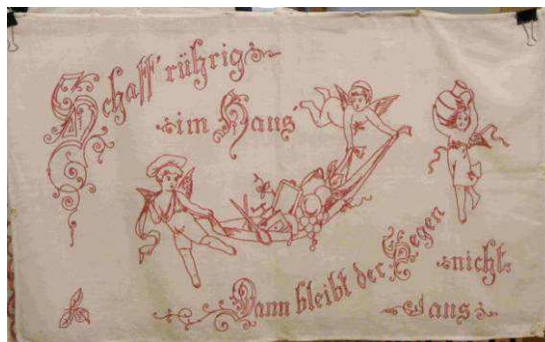 Schaff' rührig
im Haus'
Dann bleibt der Segen
nicht
aus